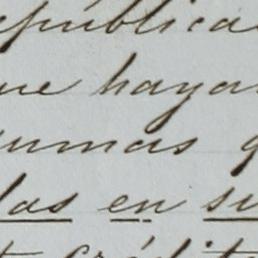 epública
ue haya
umas q
las en su
t crédit